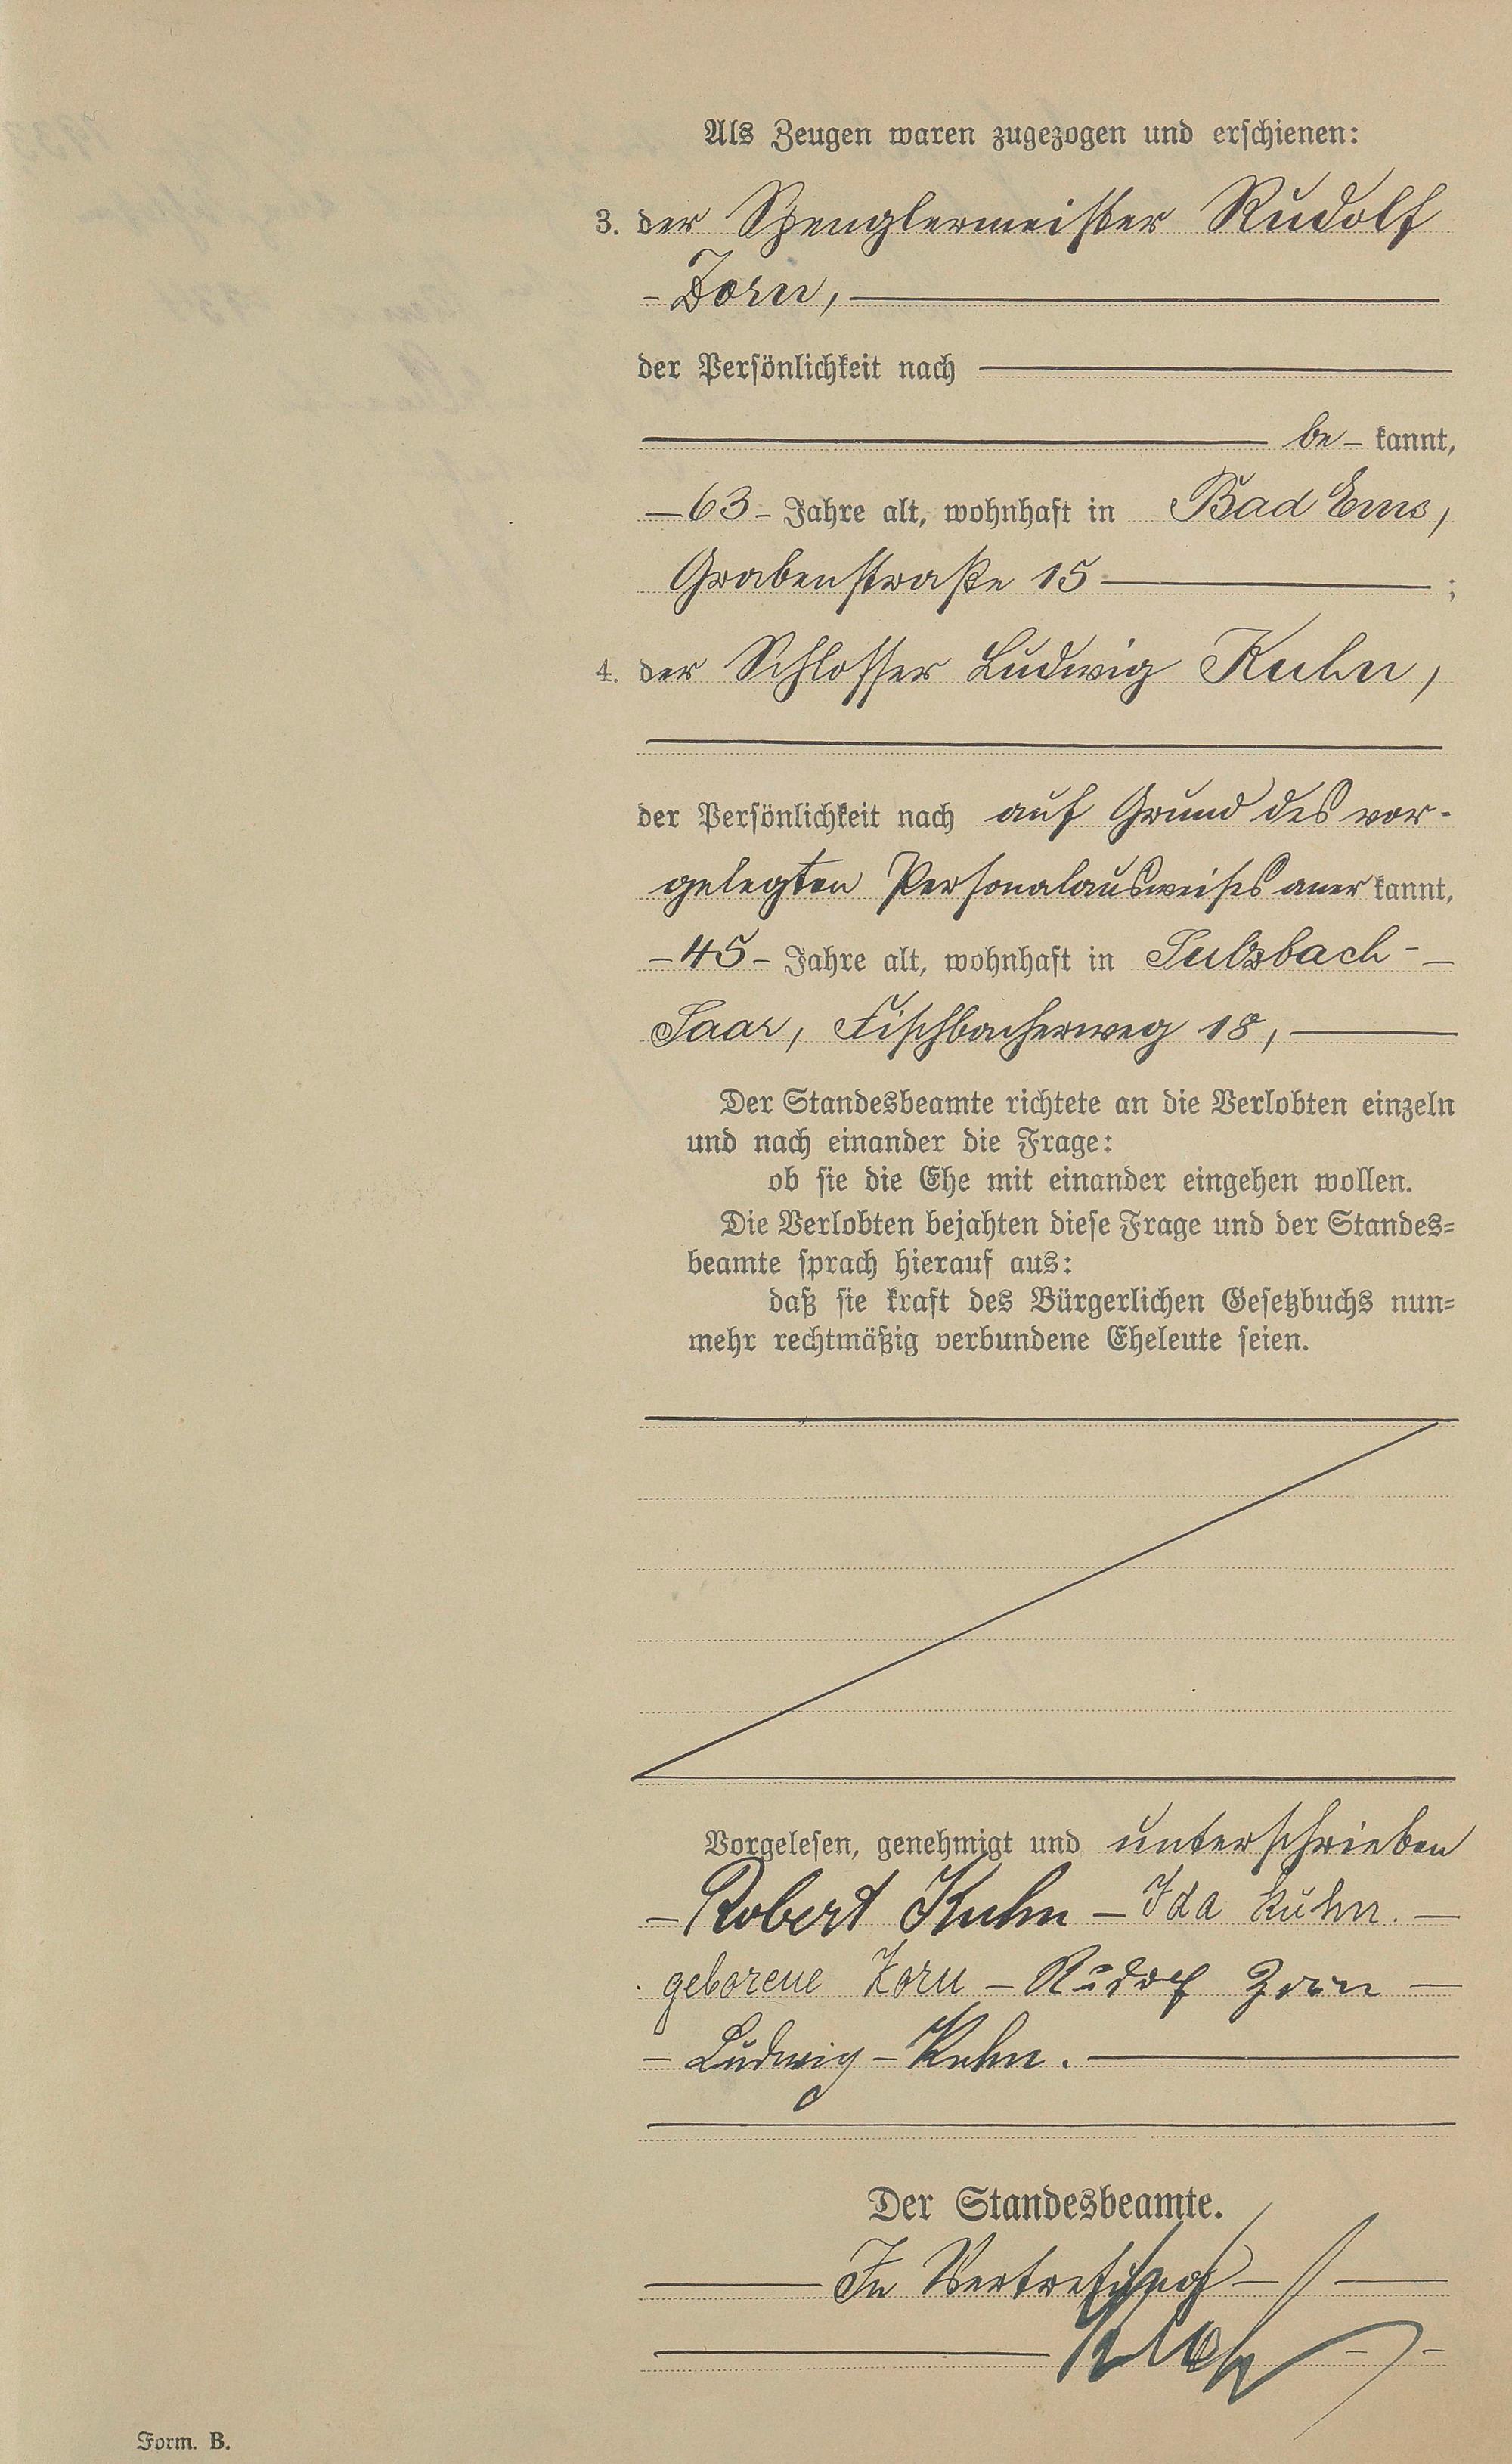 Als Zeugen waren zugezogen und erschienen:
3. der Spenglermeister Rudolf
- Zorn, -
der Persönlichkeit nach
be- kannt,
- 63 - Jahre alt, wohnhaft in Bad Ems,
Grabenstraße 15 ;
4. der Schlosser Ludwig Kuhn,
der Persönlichkeit nach auf Grund des vor-
gelegten Personalausweises aner kannt,
- 45 - Jahre alt, wohnhaft in Sulzbach -
Saar, Fischbacherweg 18,
Der Standesbeamte richtete an die Verlobten einzeln
und nach einander die Frage:
ob sie die Ehe mit einander eingehen wollen.
Die Verlobten bejahten diese Frage und der Standes-
beamte sprach hierauf aus:
daß sie kraft des Bürgerlichen Gesetzbuchs nun-
mehr rechtmäßig verbundene Eheleute seien.
Vorgelesen, genehmigt und unterschrieben
- Robert Kuhn - Ida Kuhn. -
geborene Zorn - Rudolf Zorn -
- Ludwig - Kuhn. -
Der Standesbeamte.
In Vertretung
Form. B.